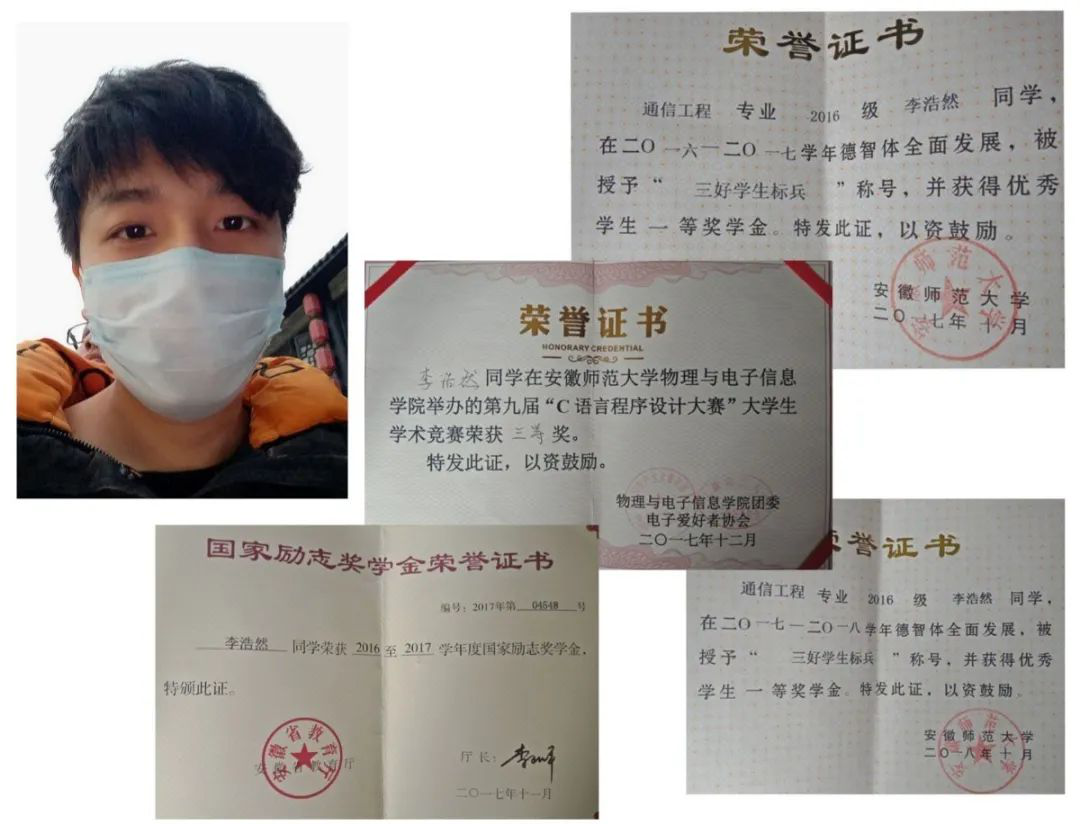 荣誉证书
通信工程 专业 2016 级 李浩然 同学，
在二〇一六一二〇一七学年德智体全面发展，被
授予“ 三好学生标兵 ”称号，并获得优秀
学生 一 等奖学金。特发此证，以资鼓励。
安徽师范大学
二〇一七年十月
荣誉证书
HONORARY CREDENTIAL
李浩然同学在安徽师范大学物理与电子信息
学院举办的第九届“C 语言程序设计大赛”大学生
学术竞赛荣获 三等 奖。
特发此证，以资鼓励。
物理与电子信息学院团委
电子爱好者协会
二〇一七年十二月
国家励志奖学金荣誉证书
编号：2017年第 04548 号
李浩然 同学荣获 2016 至 2017 学年度国家励志奖学金，
特颁此证。
安徽省教育厅
安徽省教育厅
厅长：
二〇一七年十一月
荣誉证书
通信工程 专业 2016 级 李浩然 同学，
在二〇一七一二〇一八学年德智体全面发展，被
授予“ 三好学生标兵 ”称号，并获得优秀
学生 一 等奖学金。特发此证，以资鼓励。
安徽师范大学
二〇一八年十月